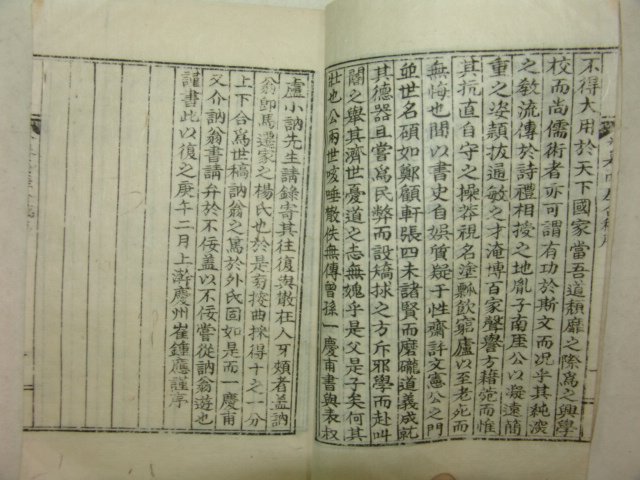 不得大用於天下國家當吾道頹靡之際爲之興學
校而尚儒術者亦可謂有功於斯文而况乎其純深
之敎流傳於詩禮相授之地胤子南座公以凝遠簡
重之姿穎拔過敏之才淹博百家聲譽方藉菀而惟
其抗直自守之操莽視名塗瓢飮窮廬以至老死而
無悔也間以書史自娛質疑于性齋許文憲公之門
並世名碩如鄭顧軒張四未諸賢而磨礲道義成就
其德器且嘗爲民弊而設矯捄之方斥邪學而赴叫
閤之舉其濟世憂道之志無媿乎是父是子矣何其
壯也公兩世咳唾散佚無傳曾孫一慶甫書與表叔
盧小訥先生請錄寄其往復與散在人牙頰者盖訥
翁卽馬遷家之楊氏也於是旁搜曲採得十之一分
上下合爲世稿訥翁之篤於外氏固如是而一慶甫
又介訥翁書請弁於不佞盖以不佞嘗從訥翁遊也
謹書此以復之庚午二月上澣慶州崔鍾應謹序